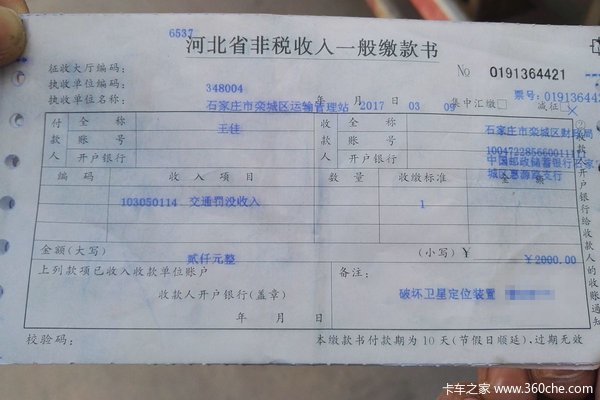 6537
河北省非税收入一般缴款书
征收大厅编码：
执收单位编码： 348004
执收单位名称： 石家庄市栾城区运输管理站
年 月 日 2017 03 09
集中汇缴□ 减征□
No 0191364421
票号：019136442
付款人 全称 王佳
账号
开户银行
收款人 全称 石家庄市栾城区财政局
账号
开户银行 中国邮政储蓄银行
城区惠源路支行
编码 收入项目 数量 收缴标准 金额
103050114 交通罚没收入 1
金额(大写) 贰仟元整 (小写) ￥2000.00
上列款项已收入收款单位账户
收款人开户银行(盖章)
年 月 日
备注：
破坏卫星定位装置
校验码：
本缴款书付款期为10天(节假日顺延),过期无效
②收款人开户银行给收款人的收账通知
卡车之家 www.360che.com